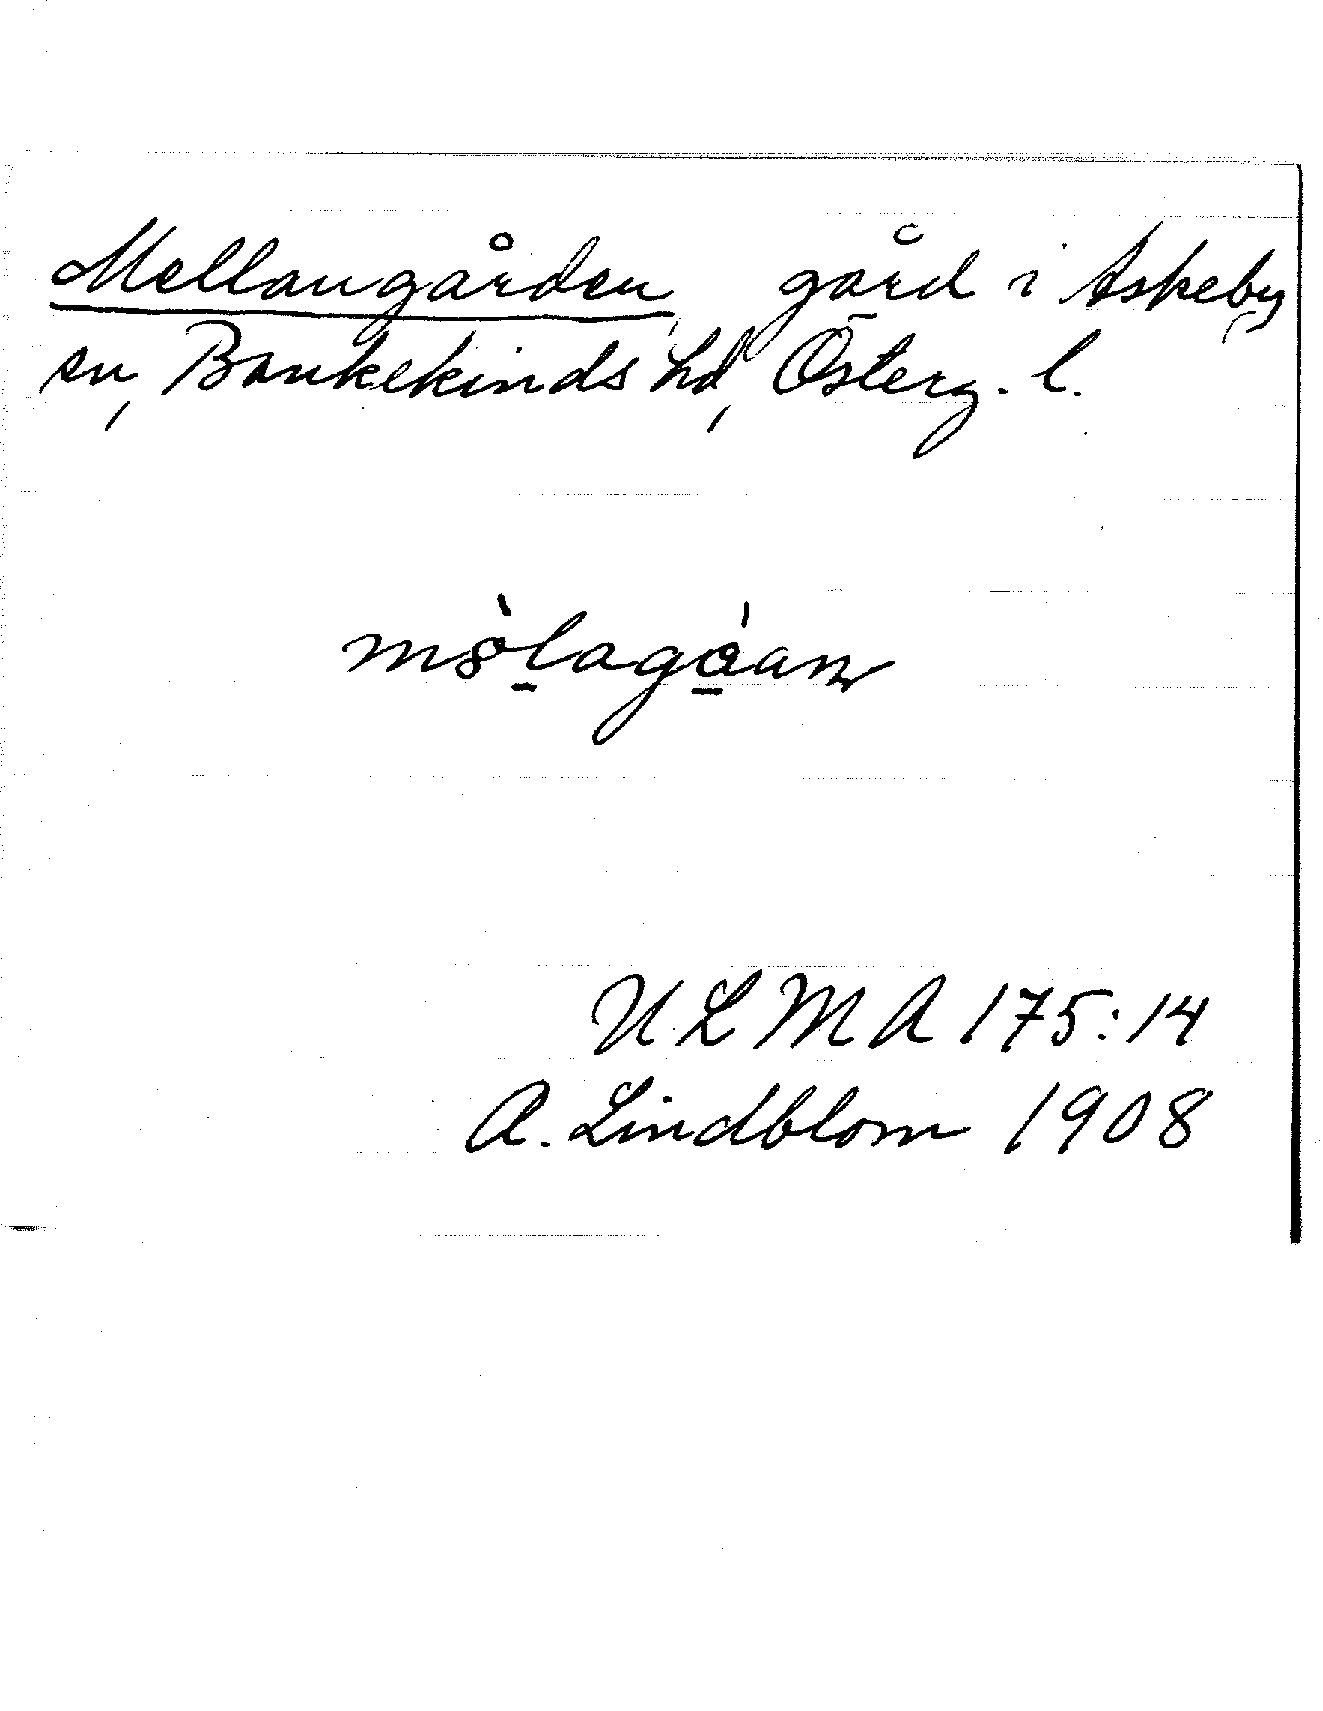 Mellangården, gård i Askeby
sn, Bankekinds hd, Österg. l.
ULMA 175:14
A. Lindblom 1908